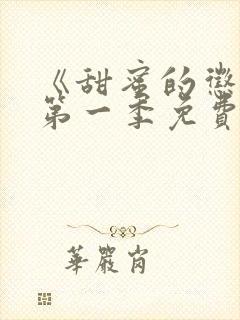 《甜蜜的懲
第一季免費
華嚴肖